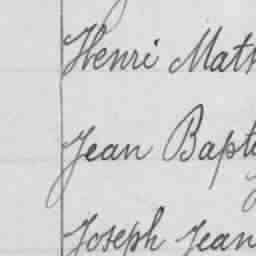 Henri Math
Jean Bapti
Joseph Jean